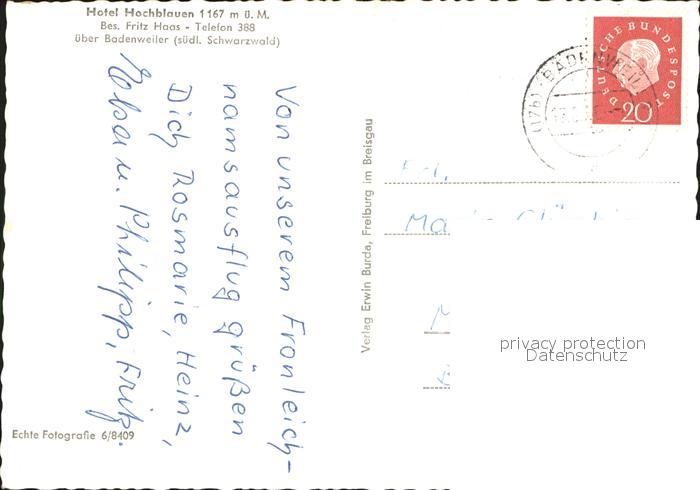 Hotel Hochblauen 1167 m ü. M.
Bes. Fritz Haas - Telefon 388
über Badenweiler (südl. Schwarzwald)
Von unserem Fronleich-
namsausflug grüßen
Dich Rosmarie, Heinz,
u. Philipp, Fritz.
Echte Fotografie 6/8409
Verlag Erwin Burda, Freiburg im Breisgau
DEUTSCHE BUNDESPOST
20
(17b) BADENWEILER
Frl.
privacy protection
Datenschutz